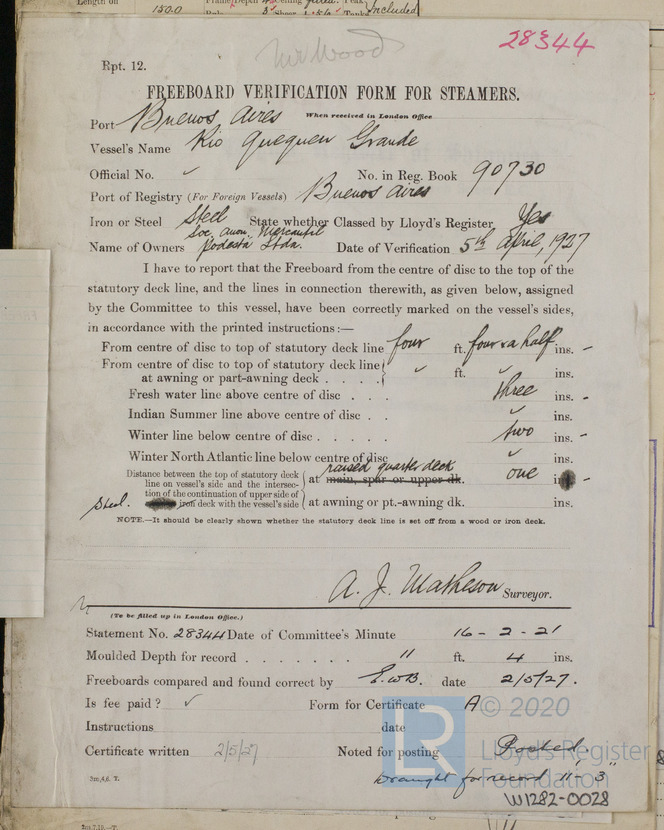 1500
Included
Mr Wood
28344
Rpt. 12.
FREEBOARD VERIFICATION FORM FOR STEAMERS.
When received in London Office
Port Buenos Aires
Vessel's Name Rio Quequen Grande
Official No. ✓ No. in Reg. Book 90730
Port of Registry (For Foreign Vessels) Buenos Aires
Iron or Steel Steel State whether Classed by Lloyd's Register Yes
Soc. Anon. Mercantil
Name of Owners Podesta Ltda. Date of Verification 5th April, 1927
I have to report that the Freeboard from the centre of disc to the top of the
statutory deck line, and the lines in connection therewith, as given below, assigned
by the Committee to this vessel, have been correctly marked on the vessel's sides,
in accordance with the printed instructions:—
From centre of disc to top of statutory deck line four ft. four & a half ins. –
From centre of disc to top of statutory deck line
at awning or part-awning deck . . . . ✓ ft. ✓ ins.
Fresh water line above centre of disc . . . three ins. –
Indian Summer line above centre of disc . . ✓ ins.
Winter line below centre of disc . . . . . two ins. –
Winter North Atlantic line below centre of disc ✓ ins.
raised quarter deck
Distance between the top of statutory deck
line on vessel's side and the intersec-
at main, spar or upper dk. one in –
tion of the continuation of upper side of
Steel. iron deck with the vessel's side at awning or pt.-awning dk. ins.
NOTE.—It should be clearly shown whether the statutory deck line is set off from a wood or iron deck.
A. J. Matheson Surveyor.
(To be filled up in London Office.)
Statement No. 28344 Date of Committee's Minute 16 - 2 - 21
Moulded Depth for record . . . . . . . 11 ft. 4 ins.
Freeboards compared and found correct by E.W.B. date 2/5/27.
Is fee paid? ✓ Form for Certificate A
© 2020
Instructions date
Certificate written 2/5/27 Noted for posting Posted
Lloyd's Register
Foundation
Draught for record 11' - 3"
3m,4,6. T.
W1282-0028